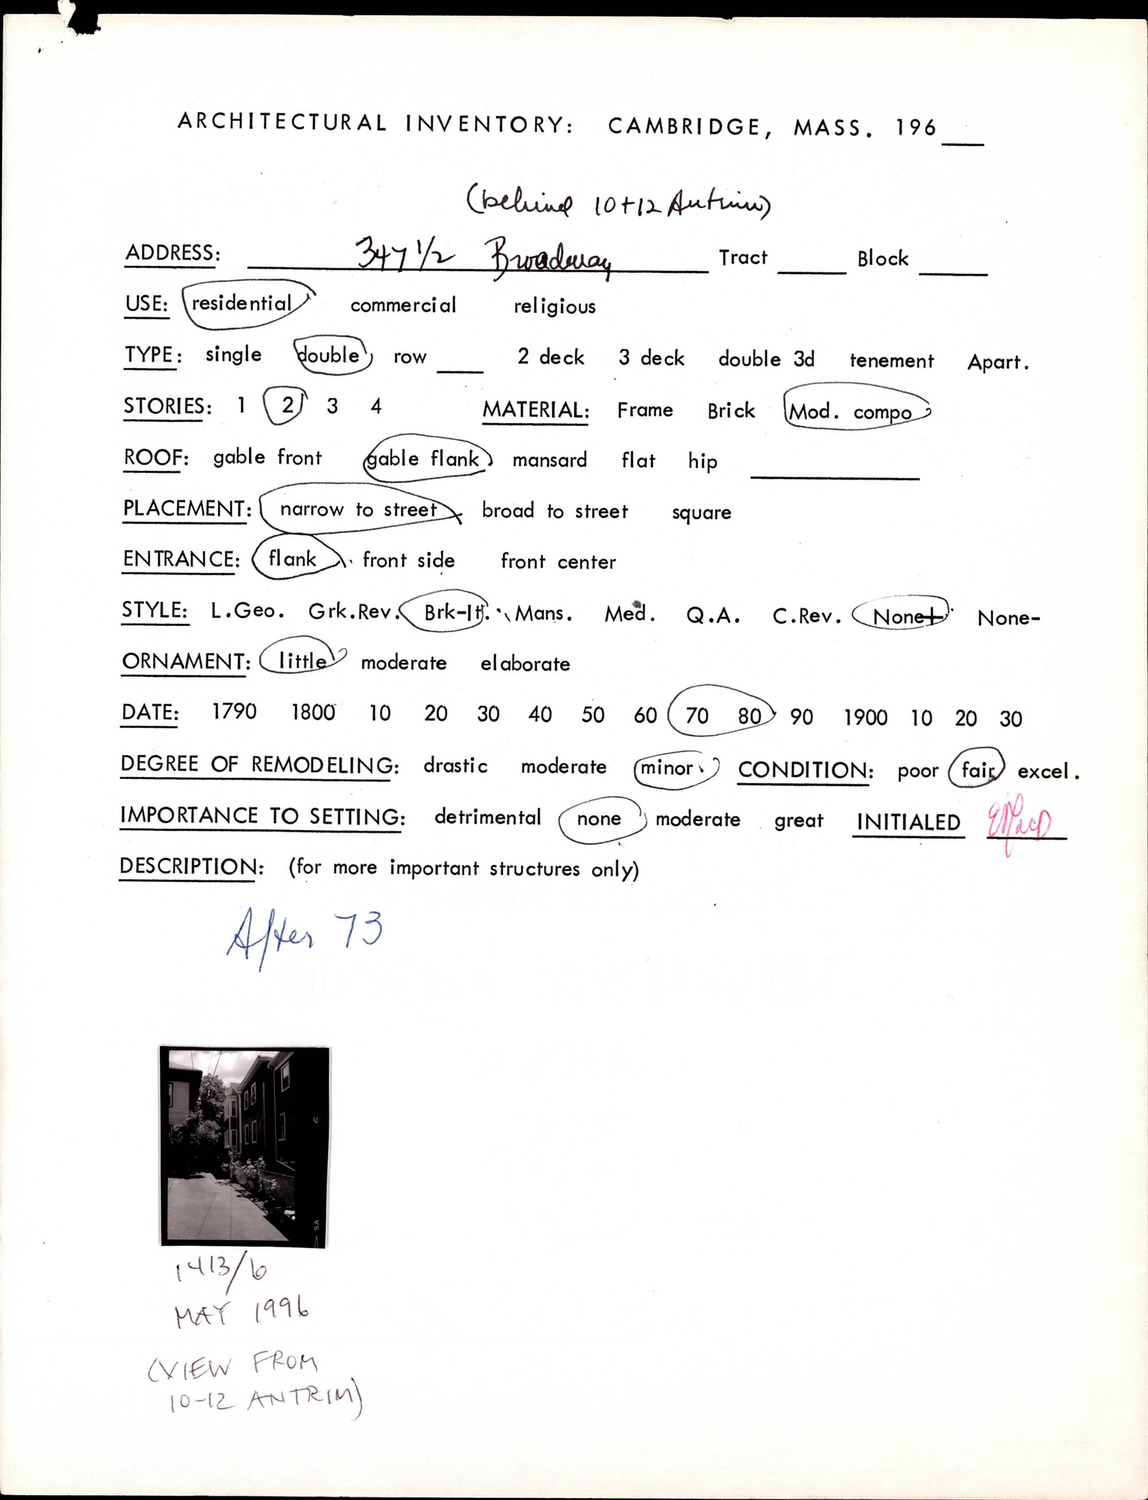 ARCHITECTURAL INVENTORY: CAMBRIDGE, MASS. 196___
(behind 10+12 Antrim)
ADDRESS: 347 1/2 Broadway Tract ____ Block ____
USE: residential commercial religious
TYPE: single double row ___ 2 deck 3 deck double 3d tenement Apart.
STORIES: 1 2 3 4 MATERIAL: Frame Brick Mod. compo
ROOF: gable front gable flank mansard flat hip ____
PLACEMENT: narrow to street broad to street square
ENTRANCE: flank front side front center
STYLE: L.Geo. Grk.Rev. Brk-It. Mans. Med. Q.A. C.Rev. None+ None-
ORNAMENT: little moderate elaborate
DATE: 1790 1800 10 20 30 40 50 60 70 80 90 1900 10 20 30
DEGREE OF REMODELING: drastic moderate minor CONDITION: poor fair excel.
IMPORTANCE TO SETTING: detrimental none moderate great INITIALED
DESCRIPTION: (for more important structures only)
After 73
1413/6
MAY 1996
(VIEW FROM
10-12 ANTRIM)